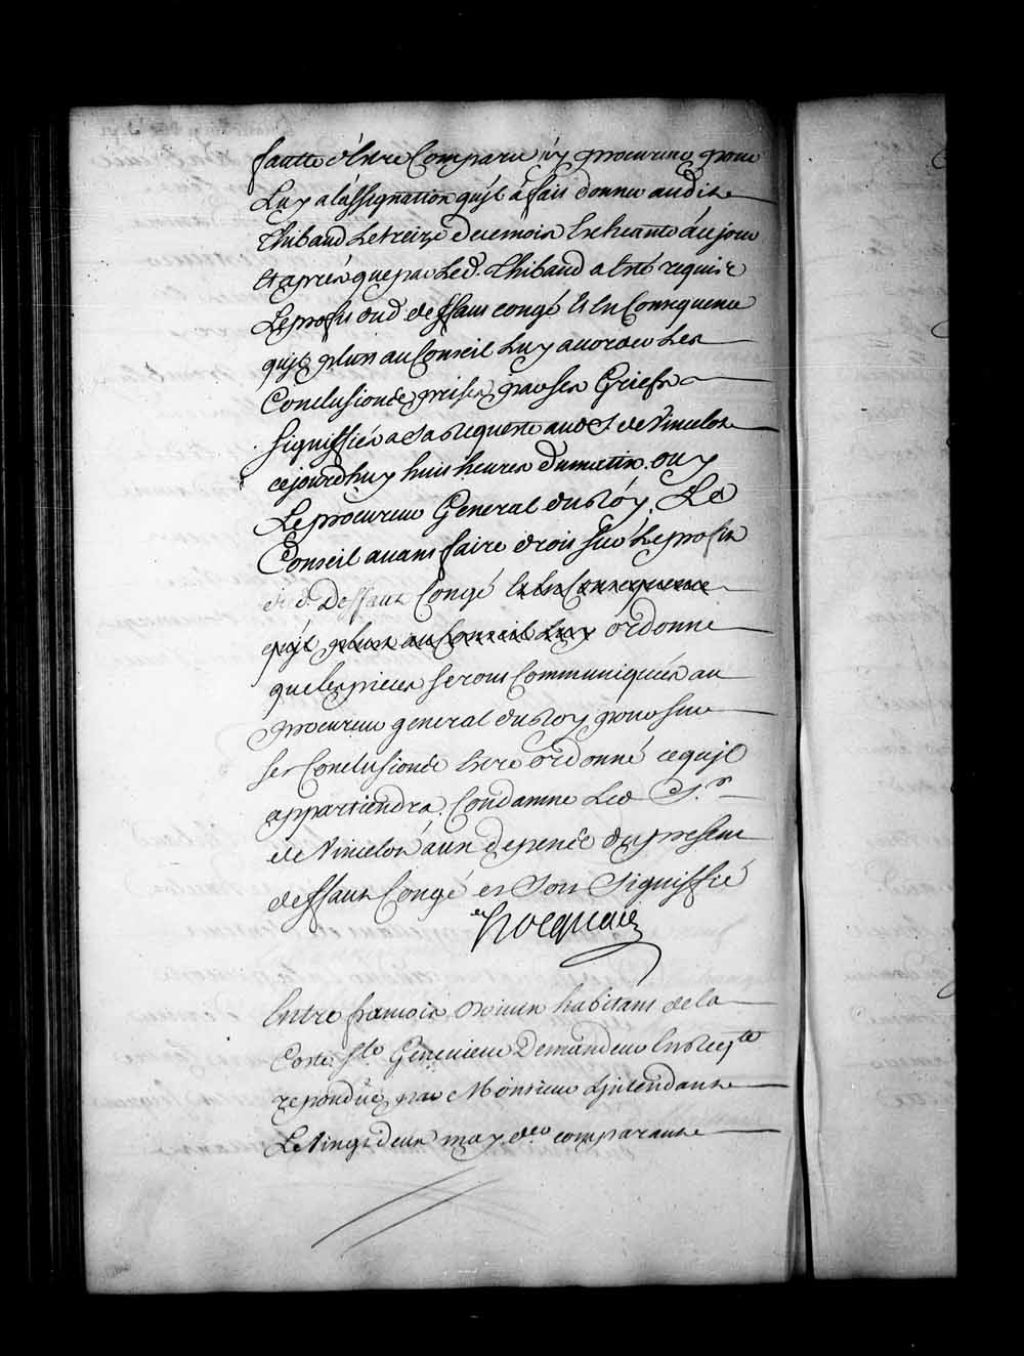 fautte d'Estre Comparu ny procureur pour
Luy a l'assignation qu'il a fait donner audit
Thibaud Le treize de ce mois Echeante à ce jour
Et après que par Led. Thibaud a Esté requis
Le profit dud. deffaut congé Et En Consequence
qu'il plut au Conseil Luy accorder Les
Conclusions prises par ses Griefs
signiffiés a sa Requeste aud S. de Vincelot
cejourd'huy huit heures du matin. ouy
Le procureur General du Roy, Le
Conseil avant faire droit sur Le profit
du d. Deffaut Congé Et En Consequence
qu'il plut au Conseil Luy ordonne
que les pieces seront Communiquées au
procureur general du Roy pour sur
ses Conclusions Estre ordonné ce qu'il
appartiendra. Condamne Led S.r
de Vincelot aux depens du present
deffaut Congé et Soit Signiffié
Hocquart
Entre françois habitant de la
Coste S.te Genevieve Demandeur En Req.te
repondüe par Monsieur L'intendant
Le Vingt deux may d.er comparant